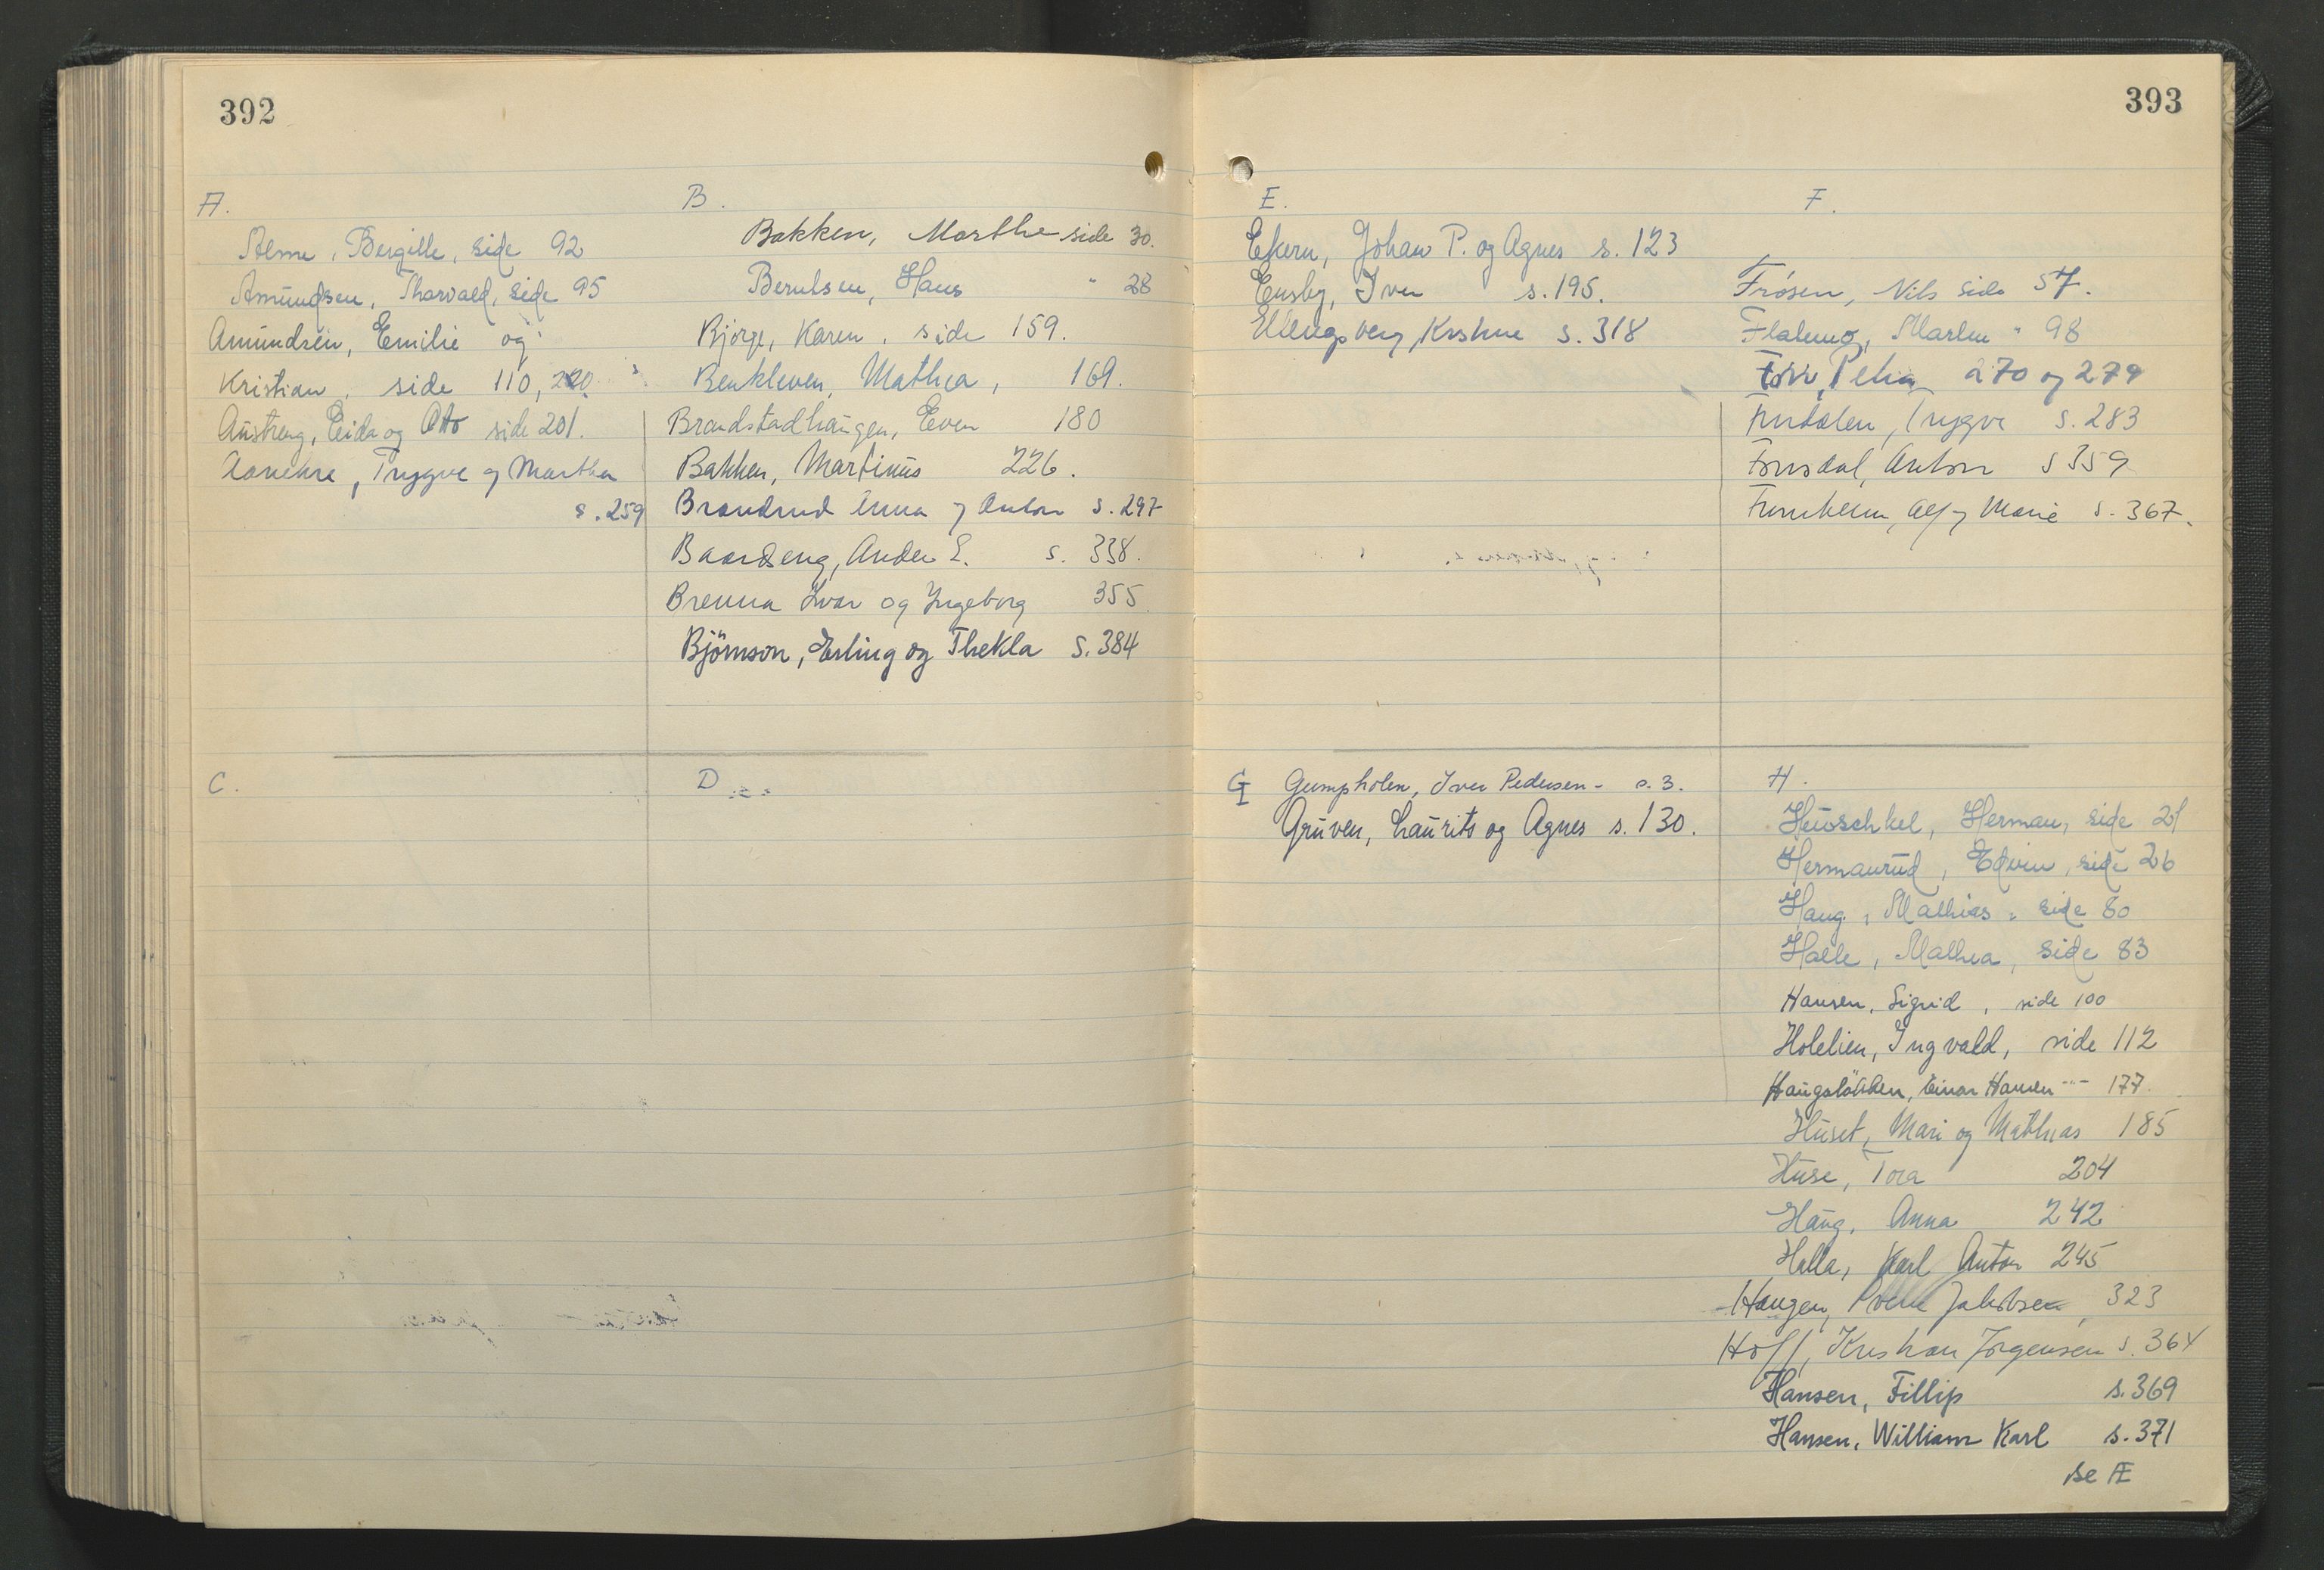 392
A.
Alme, Bergitte, side 92
Amundsen, Thorvald, side 95
Amundsen, Emilie og
Kristian, side 110, 220.
Austreng, Eida og Otto side 201.
Trygve og Marthea
s. 259
B.
Bakken, Marthe side 30.
Berntsen, Hans " 28
Bjørge, Karen, side 159.
Benkleven, Mathea, 169.
Brandstadhaugen, Even 180
Bakken, Martinus 226.
Brandrud Anna og Anton s. 297
Baardseng, Anders E. s. 338.
Brenna Ivar og Ingeborg 355.
Björnson, Erling og Thekla S. 384
C.
D
393
E.
Ekern, Johan P. og Agnes s. 123
Ensby, Iver s. 195.
Ellingsberg, Kristine s. 318
F.
Frøsen, Nils side 57.
Flateng, Marten " 98
Petra 270 og 279
Trygve s. 283
Anton s 359
Furuheim, Alf og Marie s. 367.
G
Gumpholen, Iver Pedersen - s. 3.
Gruven, Laurits og Agnes s. 130.
H.
Heuschkel, Herman, side 21
Hermanrud, Edvin, side 26
Haug, Mathias, side 80
Halle, Mathea, side 83
Hansen, Sigrid, side 100
Holelien, Ingvald, side 112
Haugslökken, Einar Hansen -"- 177.
Huset, Mari og Mathias 185
Huse, Tora 204
Haug, Anna 242
Halla, Karl Anton 245
Haugen, Jakobsen, 323
Hoff, Kristian Jørgensen s. 364
Hansen, Fillip s. 369
Hansen, William Karl s. 371
se Æ